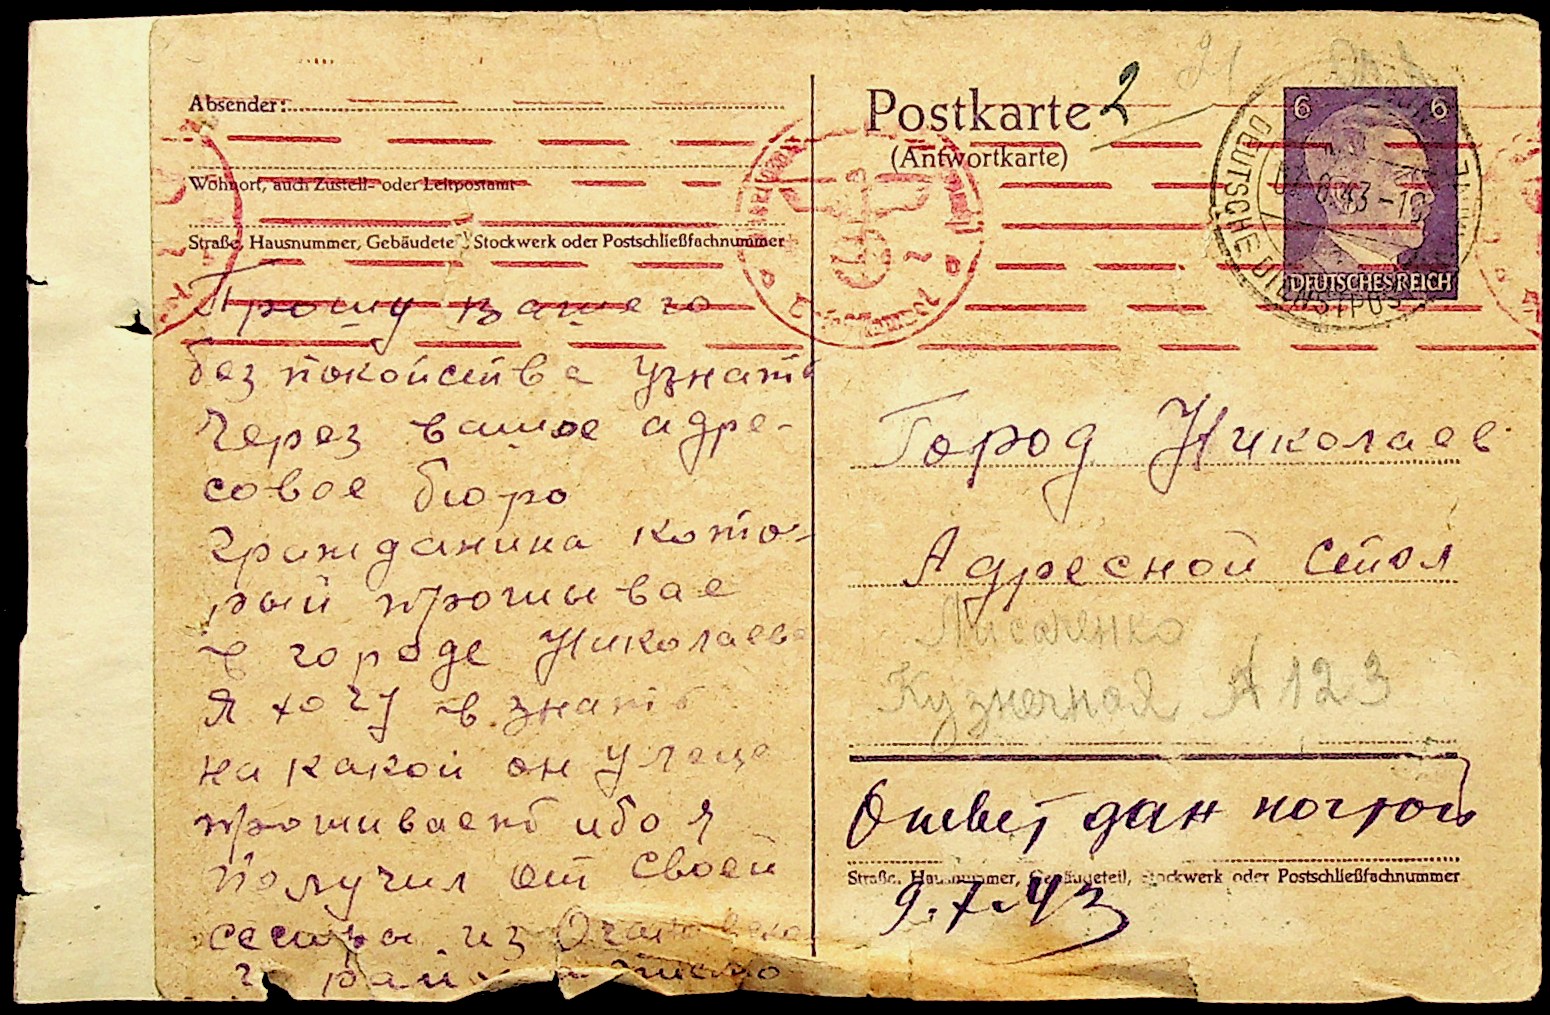 Absender:
Wohnort, auch Zustell- oder Leitpostamt
Straße, Hausnummer, Gebäudeteil, Stockwerk oder Postschließfachnummer
Прошу вашего
без покойства узнать
через вашое адре-
совое бюро
гражданина кото-
рый прожывае
в городе Николаеве
я хочу в знать
на какой он улеце
проживаеть ибо я
получил от своей
сестры из
рай письмо
Postkarte 2
(Antwortkarte)
21
6 6
DEUTSCHES REICH
DEUTSCHE DIENSTPOST
43-10
Город Николаев
Адресной Стол
Писаченко
Кузнечная А 123
Ответ дан почтой
Straße, Hausnummer, Gebäudeteil, Stockwerk oder Postschließfachnummer
9.7.43